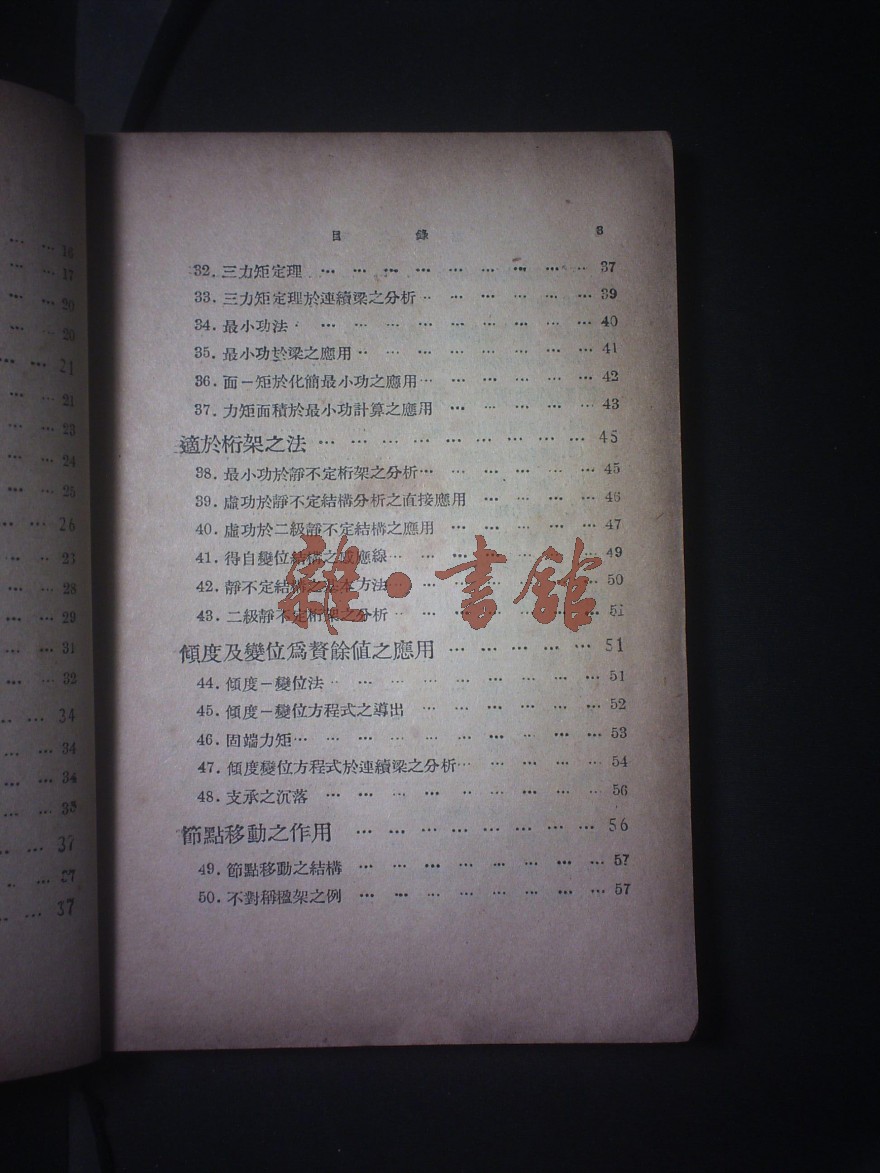 16
17
20
20
21
21
23
24
25
26
23
28
29
31
32
34
34
34
35
37
37
37
目 錄 3
32. 三力矩定理 … … … … … … … … … 37
33. 三力矩定理於連續梁之分析 … … … … … … 39
34. 最小功法 … … … … … … … … … 40
35. 最小功於梁之應用 … … … … … … … … 41
36. 面－矩於化簡最小功之應用 … … … … … … 42
37. 力矩面積於最小功計算之應用 … … … … … 43
適於桁架之法 … … … … … … … … … 45
38. 最小功於靜不定桁架之分析 … … … … … … 45
39. 虛功於靜不定結構分析之直接應用 … … … … 46
40. 虛功於二級靜不定結構之應用 … … … … … 47
41. 得自變位結構之感應線 … … … … … … 49
42. 靜不定結構之基本方法 … … … … … … 50
43. 二級靜不定桁架之分析 … … … … … … 51
傾度及變位爲贅餘值之應用 … … … … … 51
44. 傾度－變位法 … … … … … … … … … 51
45. 傾度－變位方程式之導出 … … … … … … 52
46. 固端力矩 … … … … … … … … … 53
47. 傾度變位方程式於連續梁之分析 … … … … … 54
48. 支承之沉落 … … … … … … … … … 56
節點移動之作用 … … … … … … … … 56
49. 節點移動之結構 … … … … … … … … 57
50. 不對稱楹架之例 … … … … … … … … 57
雜·書館